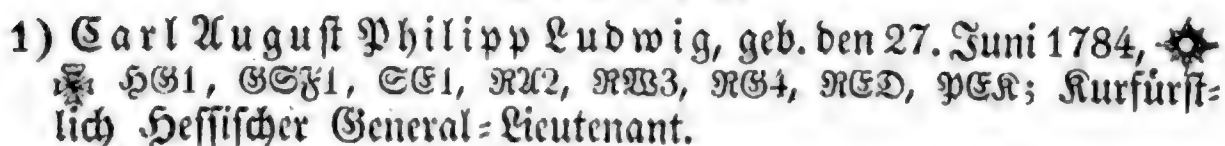 1) Carl Auguſt Philipp Ludwig, geb. den 27. Juni 1784,
HG1, GSF1, SE1, RA2, RW3, RG4, RED, PEK; Kurfürſt=
lich Heſſiſcher General=Lieutenant.